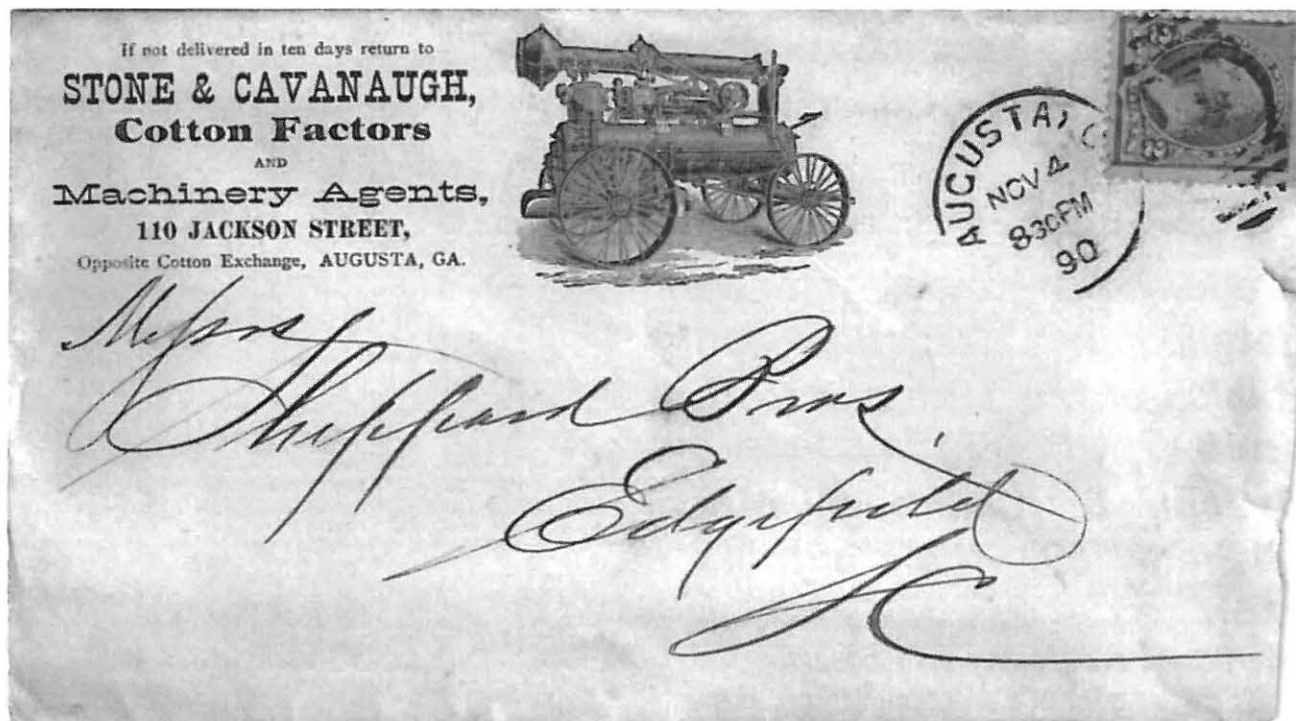 If not delivered in ten days return to
STONE & CAVANAUGH,
Cotton Factors
AND
Machinery Agents,
110 JACKSON STREET,
Opposite Cotton Exchange, AUGUSTA, GA.
AUGUSTA,
NOV 4
830PM
90
Messrs
Sheppard Bros,
Edgefield
S C